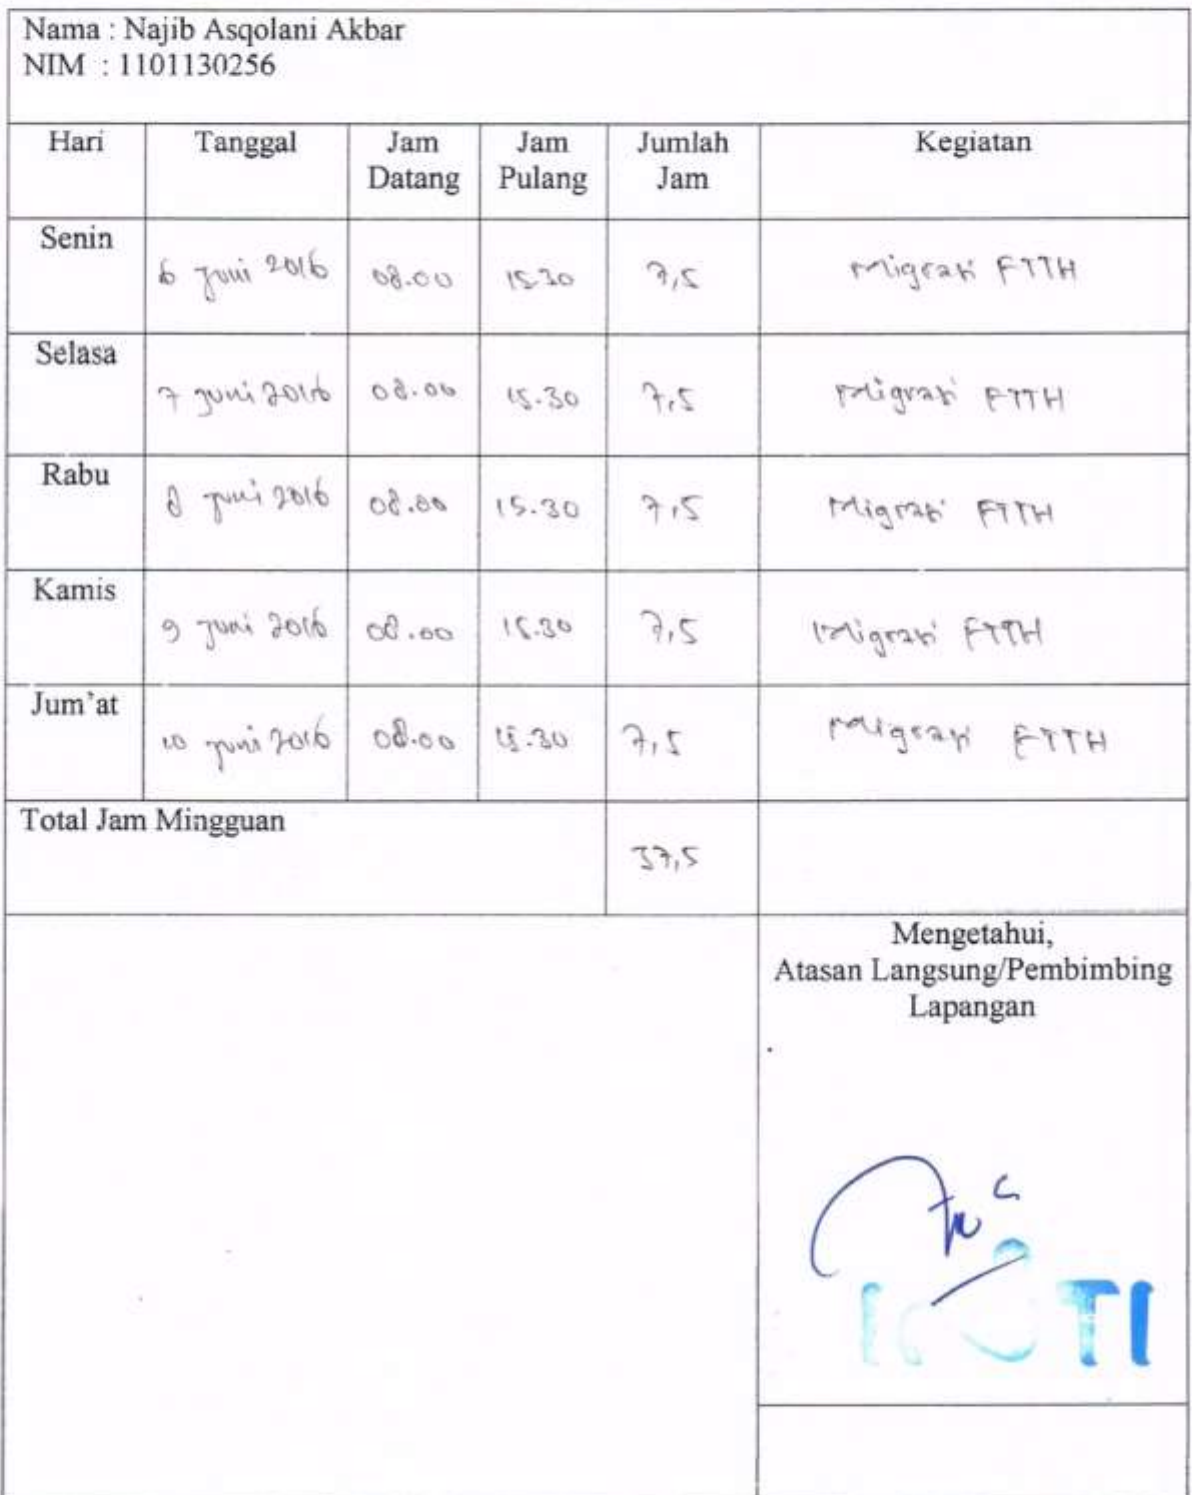 Nama : Najib Asqolani Akbar
NIM : 1101130256
Hari Tanggal Jam Datang Jam Pulang Jumlah Jam Kegiatan
Senin 6 Juni 2016 08.00 15.30 7,5 Migrasi FTTH
Selasa 7 Juni 2016 08.00 15.30 7,5 Migrasi FTTH
Rabu 8 Juni 2016 08.00 15.30 7,5 Migrasi FTTH
Kamis 9 Juni 2016 08.00 15.30 7,5 Migrasi FTTH
Jum'at 10 Juni 2016 08.00 15.30 7,5 Migrasi FTTH
Total Jam Mingguan 37,5
Mengetahui,
Atasan Langsung/Pembimbing
Lapangan